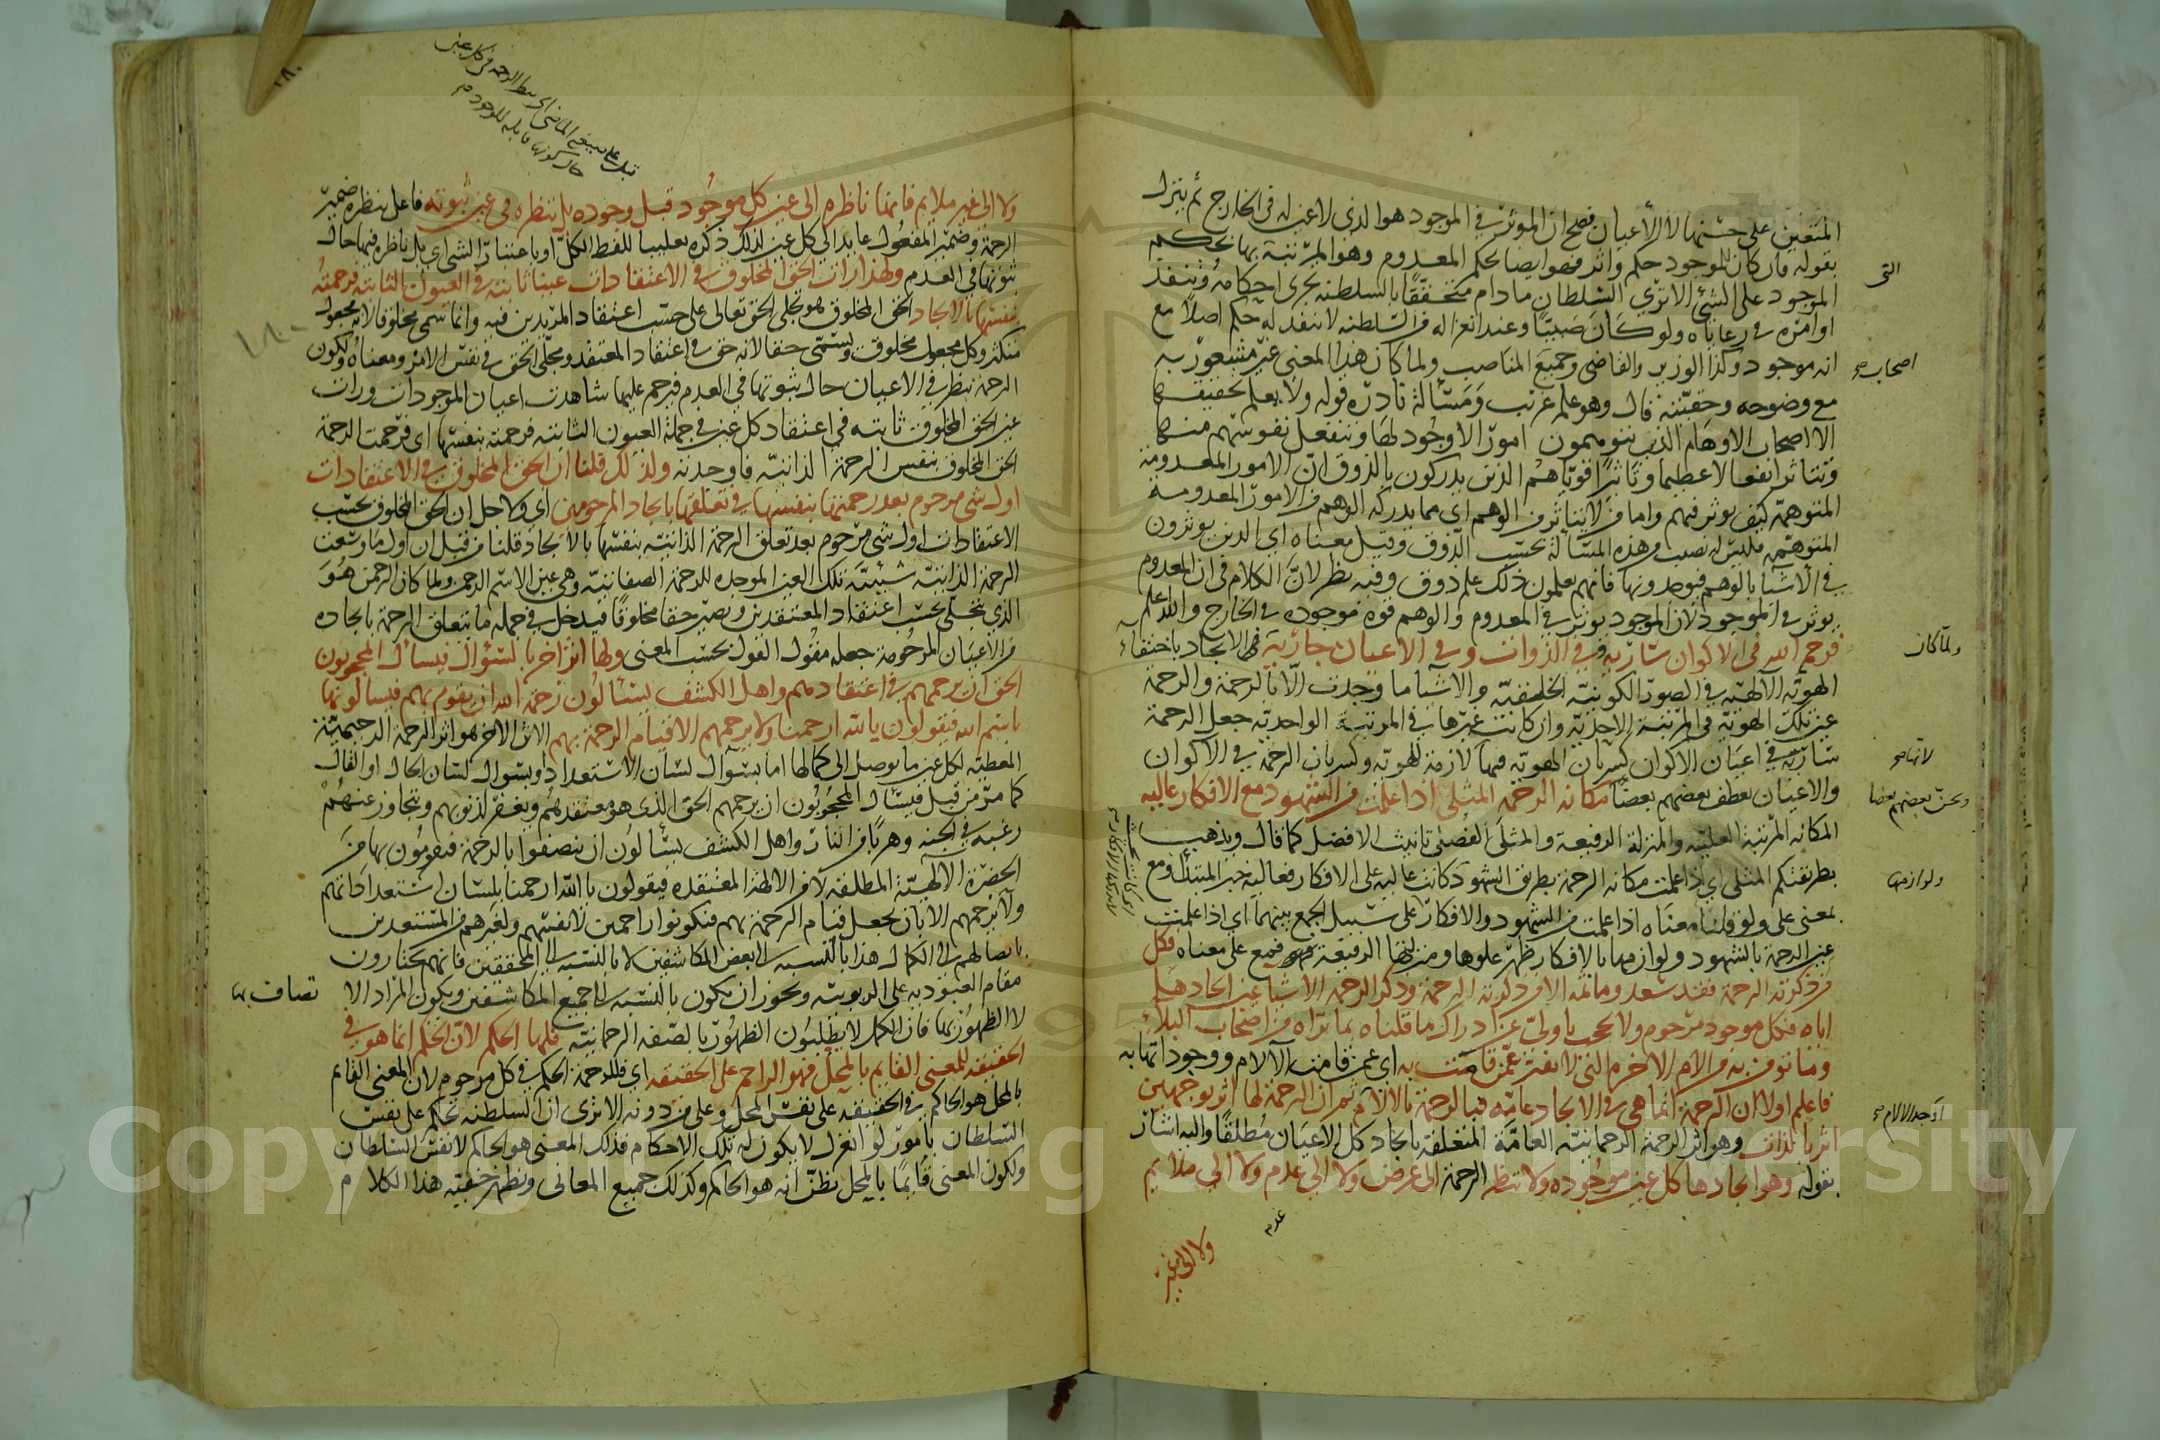 المتعين على حسبها لا الأعيان فصح ان المؤثر في الموجود هو الذي لا عين له في الخارج ثم يتنزل
بقوله فان كان للموجود حكم واثر فهو ايضا بحكم المعدوم وهو المرتبة بها تحكم
الموجود على الشئ الا ترى السلطان ما دام متحققا بالسلطنة يجري احكامه وينفذ
اوامره في رعاياه ولو كان صبيا وعند انعزاله من السلطنة لا ينفذ له حكم اصلا مع
انه موجود وكذا الوزير والقاضي وجميع المناصب ولما كان هذا المعنى غير مشعور به
مع وضوحه وحقيته قال وهو علم غريب ومسألة نادرة قوله ولا يعلم تحقيقها
الا اصحاب الاوهام الذين يتوهمون امورا لا وجود لها وتنفعل نفوسهم منها
وتتأثر انفعالا عظيما وتأثيرا قويا هم الذين يدركون بالذوق ان الامور المعدومة
المتوهمة كيف يوثر فيهم واما من لا يتأثر من الوهم اى مما يدركه الوهم من الامور المعدومة
المتوهمة فليس له نصيب من هذه المسألة بحسب الذوق وقيل معناه اي الذين يوثرون
في الاشيا بالوهم فيوجدونها فانهم يعلمون ذلك علم ذوق وفيه نظر لان الكلام في ان المعدوم
يوثر في الموجود لا ان الموجود يوثر في المعدوم والوهم قوة موجودة في الخارج والله اعلم
فرحمة الله في الاكوان سارية وفي الذوات وفي الاعيان جارية في الايجاد باختفاء
الهوية الالهية في الصور الكونية الخلقية والاشيا ما وجدت الا بالرحمة والرحمة
عين تلك الهوية في المرتبة الاحدية وان كانت غيرها في المرتبة الواحدية جعل الرحمة
سارية في اعيان الاكوان كسريان الهوية فيها لازمة للهوية وكسريان الرحمة في الاكوان
والاعيان يعطف بعضهم بعضا مكانة الرحمة المثلى اذا علمت من الشهود مع الافكار عالية
المكانة المرتبة العلية والمنزلة الرفيعة والمثلى الفضلى تانيث الافضل كما قال ويذهب
بطريقتكم المثلى اي اذا علمت مكانة الرحمة بطريق الشهود كانت عالية على الافكار فعالية خبر المبتدأ ومع
بمعنى على ولو قلنا معناه اذا علمت من الشهود والافكار على سبيل الجمع بينهما اي اذا علمت
عين الرحمة بالشهود ولوازمها بالافكار ظهر علوها ومنزلتها الرفيعة فمع على معناه فكل
من ذكرته الرحمة فقد سعد وما ثمة الا من ذكرته الرحمة وذكر الرحمة الاشيا عين ايجادها
اياه فكل موجود مرحوم ولا تحجب يا ولي عن ادراك ما قلناه بما تراه من اصحاب البلاء
وما تؤمن به من الام الاخرة التي لا تفتر عمن قامت به اي عمن قامت الآلام ووجوداتها به
فاعلم اولا ان الرحمة انما هي في الايجاد عامة فبالرحمة بالالام ثم ان الرحمة لها اثر بوجهين
اثر بالذات وهو اثر الرحمة الرحمانية العامة المتعلقة بايجاد كل الاعيان مطلقا واليه اشار
بقوله وهو ايجادها كل عين موجودة ولا تنظر الرحمة الى غرض ولا الى عدم ولا الى ملايم
عدم
ولا الى غير
التى
اصحاب
ولما كان
لانها
ويحن بعضهم بعضا
ولوازمها
اوجد الالام
ولا الى غير ملايم فانها ناظرة الى عين كل موجود قبل وجوده بل تنظره في عين ثبوته فاعل ينظره ضمير
الرحمة وضمير المفعول عايد الى كل عين لذلك ذكره تغليبا للفظ الكل او باعتبار الشئ اي بل ناظرة فيها حال
ثبوتها في العدم ولهذا رات الحق المخلوق في الاعتقادات عينا ثابتة في العيون الثابتة فرحمته
بنفسها بالايجاد الحق المخلوق هو تجلى الحق تعالى على حسب اعتقاد المريدين فيه وانما سمى مخلوقا لانه مجعول
متكثر وكل مجعول مخلوق ويسمى حقا لانه حق في اعتقاد المعتقد ومجلى الحق في نفس الامر ومعناه ولكون
الرحمة تنظر في الاعيان حال ثبوتها في العدم فيرحم عليها شاهدت اعيان الموجودات ورات
عين الحق المخلوق ثابتة في اعتقاد كل عين في جملة العيون الثابتة فرحمته بنفسها اى فرحمت الرحمة
الحق المخلوق بنفس الرحمة الذاتية فاوجدته ولذلك قلنا ان الحق المخلوق في الاعتقادات
اول شئ مرحوم بعد رحمتها بنفسها في تعلقها بايجاد المرحومين اي ولاجل ان الحق المخلوق بحسب
الاعتقادات اول شئ مرحوم بعد تعلق الرحمة الذاتية بنفسها بالايجاد قلنا من قبل ان اول ما وسعت
الرحمة الذاتية شيئية تلك العين الموجدة للرحمة الصفاتية وهي عين الاسم الرحمن ولما كان الرحمن هو
الذي يتجلى بحسب اعتقاد المعتقدين ويصير حقا مخلوقا فيدخل في جملة ما تتعلق الرحمة بايجاده
من الاعيان المرحومة جعله مقول القول بحسب المعنى ولها اثر اخر بالسؤال فيسأل المحجوبون
الحق ان يرحمهم في اعتقادهم واهل الكشف يسئالون رحمة الله ان يقوم بهم فيسألونها
باسم الله فيقولون يا الله ارحمنا ولا يرحمهم الا قيام الرحمة بهم الاثر الاخر هو اثر الرحمة الرحيمية
المعطية لكل عين ما يوصل الى كمالها اما بسؤال لسان الاستعداد او بسؤال لسان الحال او القال
كما مر من قبل فيسأل المحجوبون ان يرحمهم الحق الذى هو معتقدهم ويغفر لذنوبهم ويتجاوز عنهم
رغبة في الجنة وهربا من النار واهل الكشف يسألون ان يتصفوا بالرحمة فيقومون بها من
الحضرة الالهية المطلقة لا من الالهة المعتقدة فيقولون يا الله ارحمنا بلسان استعداداتهم
ولا يرحمهم الا بان يجعل قيام الرحمة بهم فيكونوا راحمين لانفسهم ولغيرهم من المستعدين
بايصالهم الى الكمال هذا بالنسبة الى بعض المكاشفين لا بالنسبة الى المحققين فانهم يختارون
مقام العبودية على الربوبية ويجوز ان يكون بالنسبة الى جميع المكاشفين ويكون المراد الا
لا الظهور بها فان الكمل لا يطلبون الظهور بالصفة الرحمانية فلها الحكم لان الحكم انما هو في
الحقيقة للمعنى القايم بالمحل فهو الراحم على الحقيقة اي فللرحمة الحكم في كل مرحوم لان المعنى القايم
بالمحل هو الحاكم في الحقيقة على نفس المحل وعلى من دونه الا ترى ان السلطنة تحكم على نفس
السلطان بامور لو انعزل لا يكون له تلك الاحكام فذلك المعنى هو الحاكم لا نفس السلطان
ولكون المعنى قايما بالمحل يظن انه هو الحاكم وكذلك جميع المعانى ويظهر حقية هذا الكلام
تصاف بها
١٨٠
١٨٠
Copy
King S
ersity